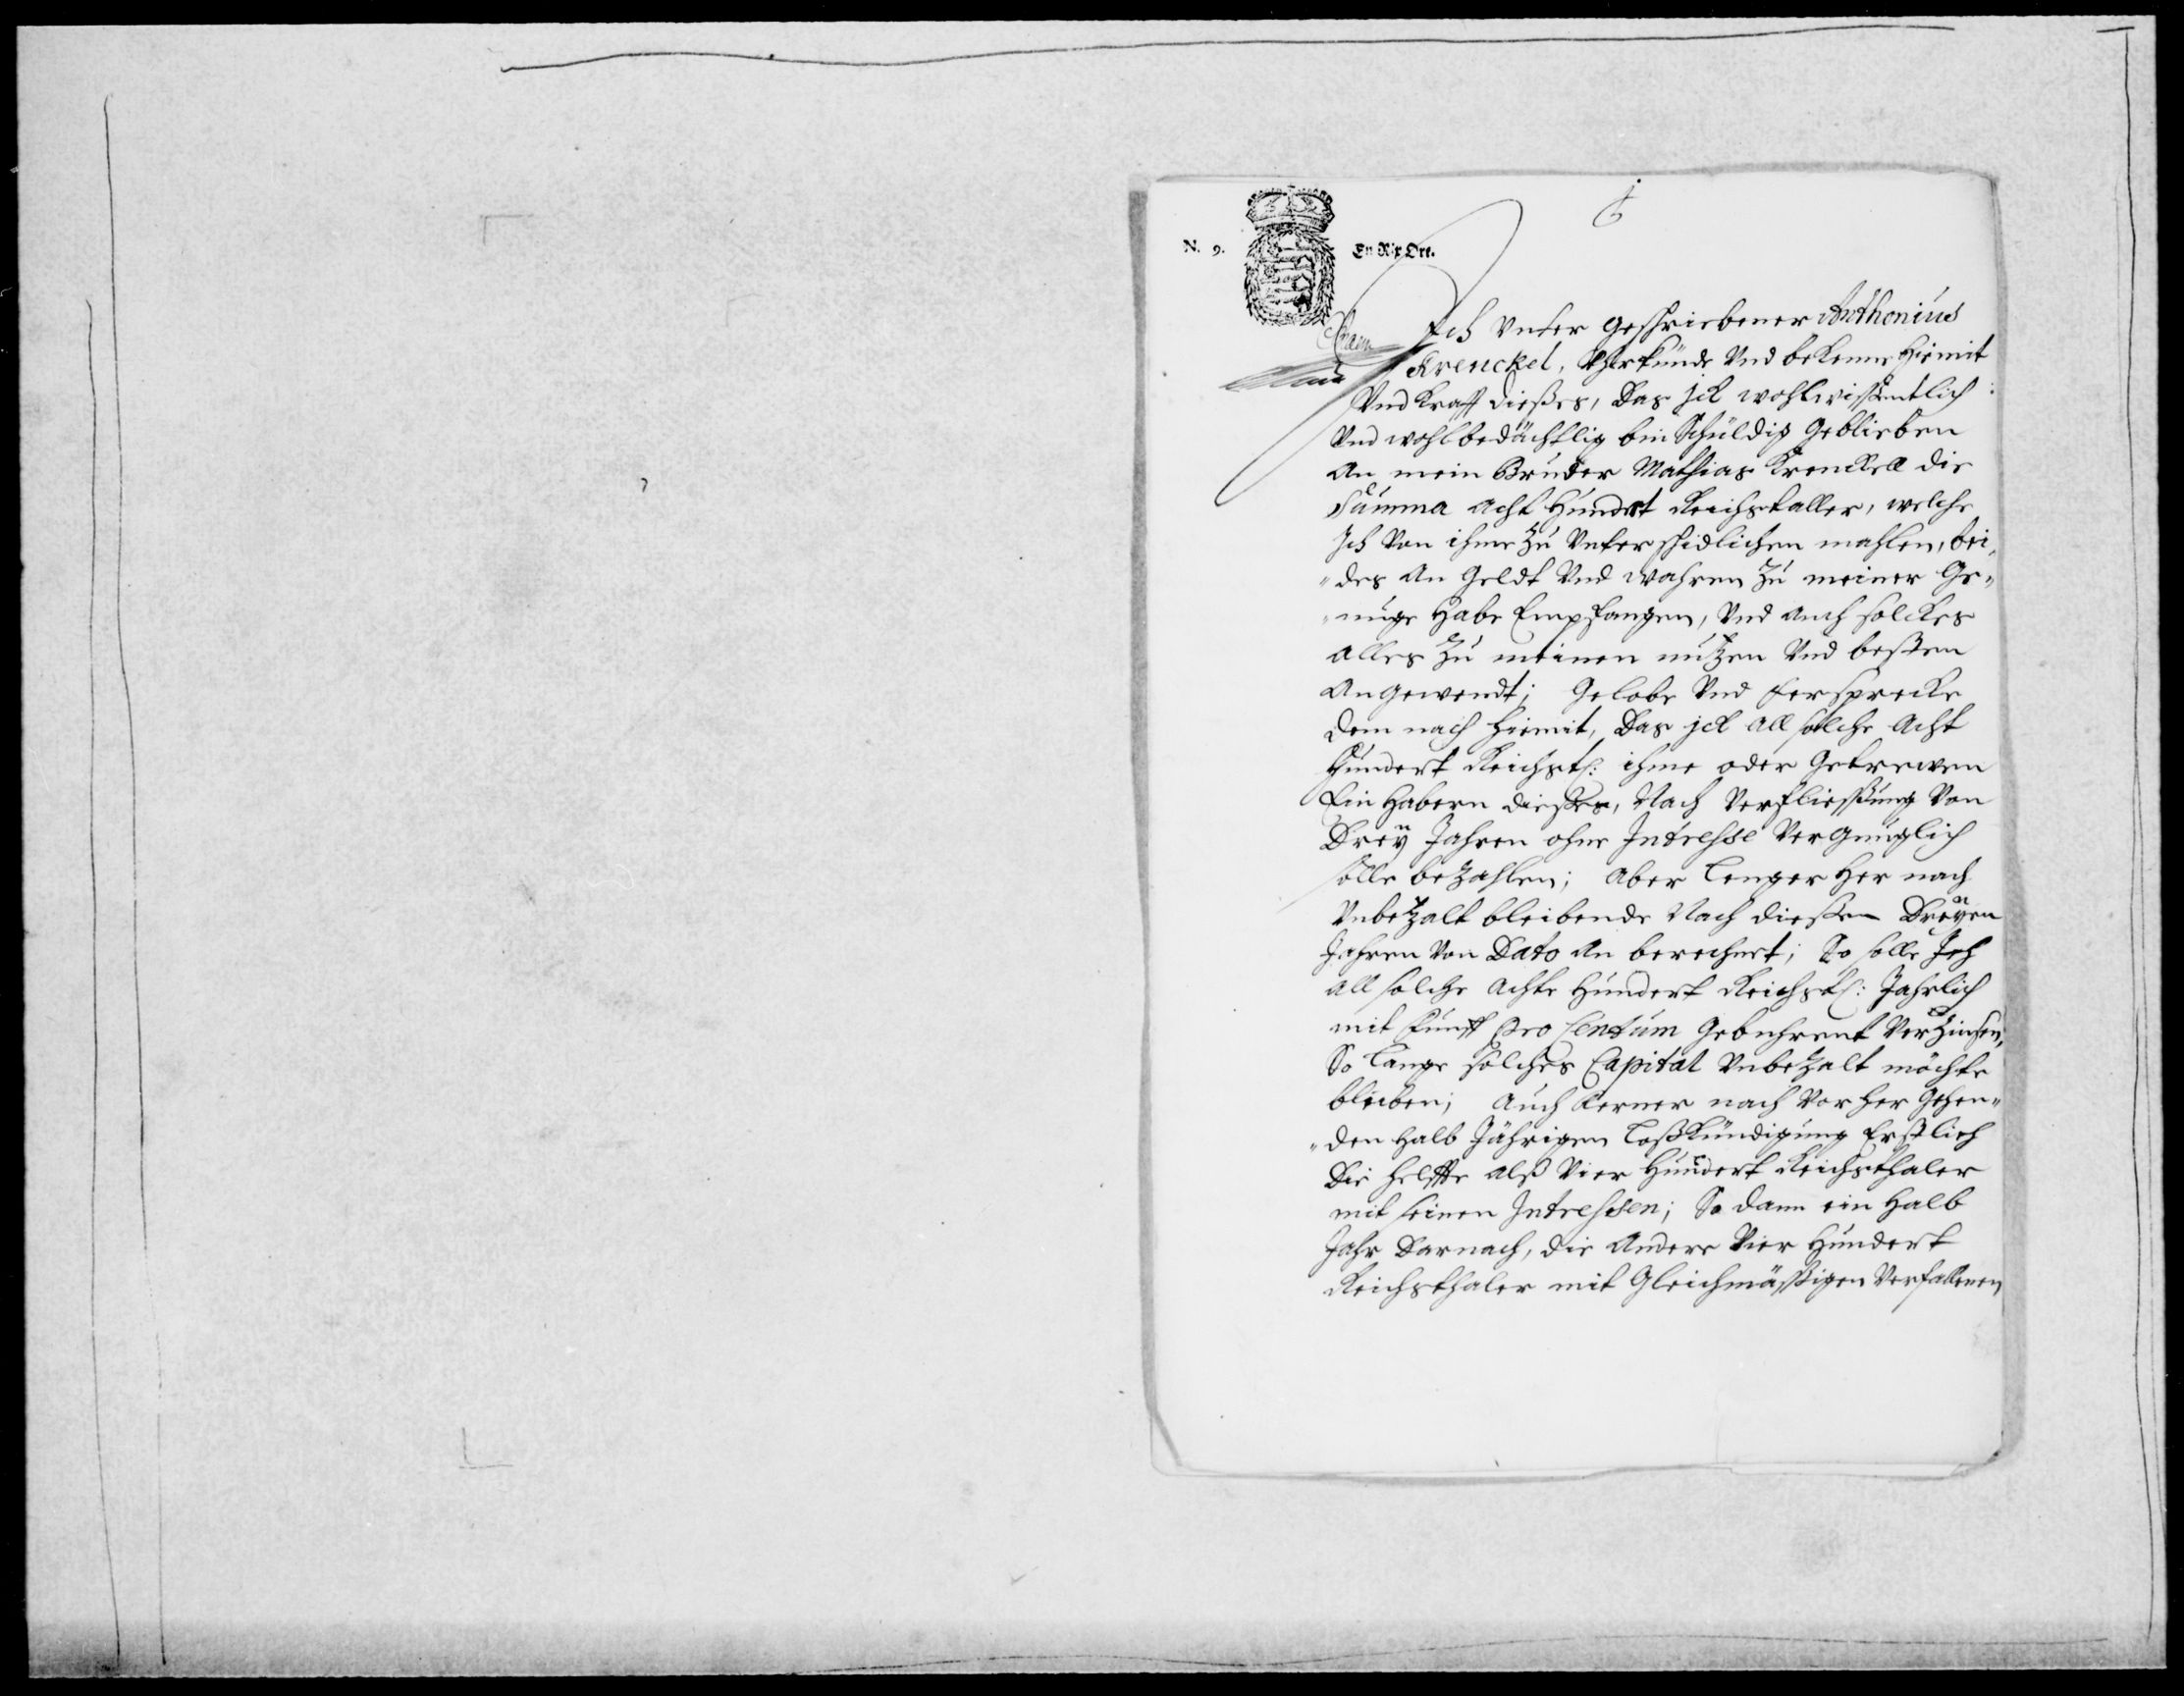 N. 9. En Rix Ort.
Ich Unter geschriebener Anthonius
Krenckel, Uhrkünde Und bekenne hiemit
Und krafft dießes, Das ich wohlwissentlich
Und wohlbedächtlig bin Schuldig Geblieben
An mein Bruder Mathias Krenckell die
Summa acht Hundert Reichstaller, welche
Ich Von ihme zu Unterschidlichen mahlen, bei„
„des An Geldt Und wahren zu meiner Ge„
„nüge Habe Empfangen, Und auch solches
alles zu meinen nutzen Und besten
Angewendt; Gelobe Und fersprecke
dem nach hiemit, Das ick all solche Acht
Hundert Reichstl: ihme oder Getrewen
Ein Habern dießes, Nach Verfliessung Von
Dreÿ Jahren ohne Intresse Vergnüglich
solle bezahlen; Aber Lenger Her nach
Unbezalt bleibende Nach dießen Dreÿen
Jahren Von Dato An berechnet; So solle Ich
all solche achte Hundert Reichstl: Jahrlich
mit fünff Pro Centum Gebuhrent Verzinsen,
So Lange solches Capital Unbezalt möchte
bleiben; Auch ferner nach Vor her Gehen„
„den Halb Jährigen Loßkündigung Erstlich
Die helffte alß Vier Hundert Reichsthaler
mit seinen Intressen; So dann ein Halb
Jahr Darnach, die Andere Vier Hundert
Reichsthaler mit Gleichmässigen Verfallenen